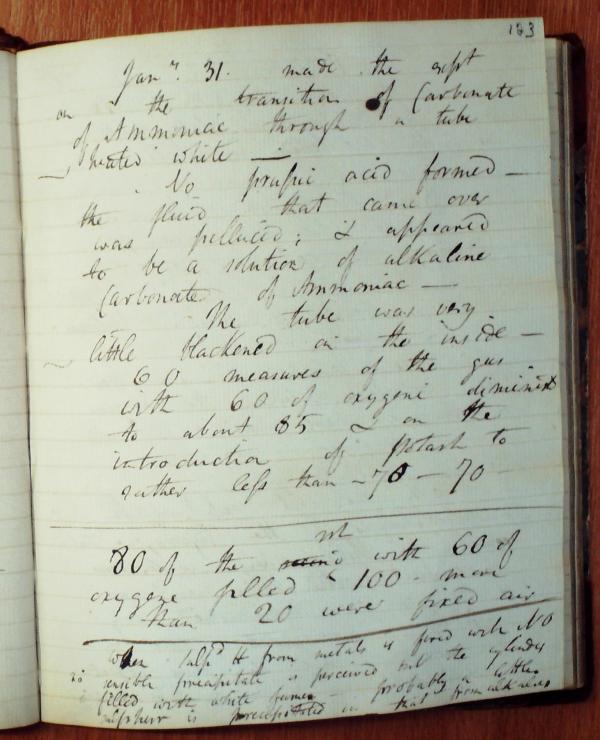 123
Jany. 31. made the expt
on the transition of Carbonate
of Ammoniac through a tube
heated white —
No prussic acid formed —
the fluid that came over
was pellucid; & appeared
to be a solution of alkaline
Carbonate of Ammoniac —
The tube was very
little blackened on the inside —
60 measures of the gas
with 60 of oxygene diminisd
to about 85 & on the
introduction of potash to
rather less than - 70 - 70
80 of the with 60 of
oxygene filled 100 - more
than 20 were fixed air
When Sulpd H from metals is fired with NO
no sensible precipitate is perceived but the cylinder
filled with white fumes — probably a little
sulphur is precipitated in that from alkalies